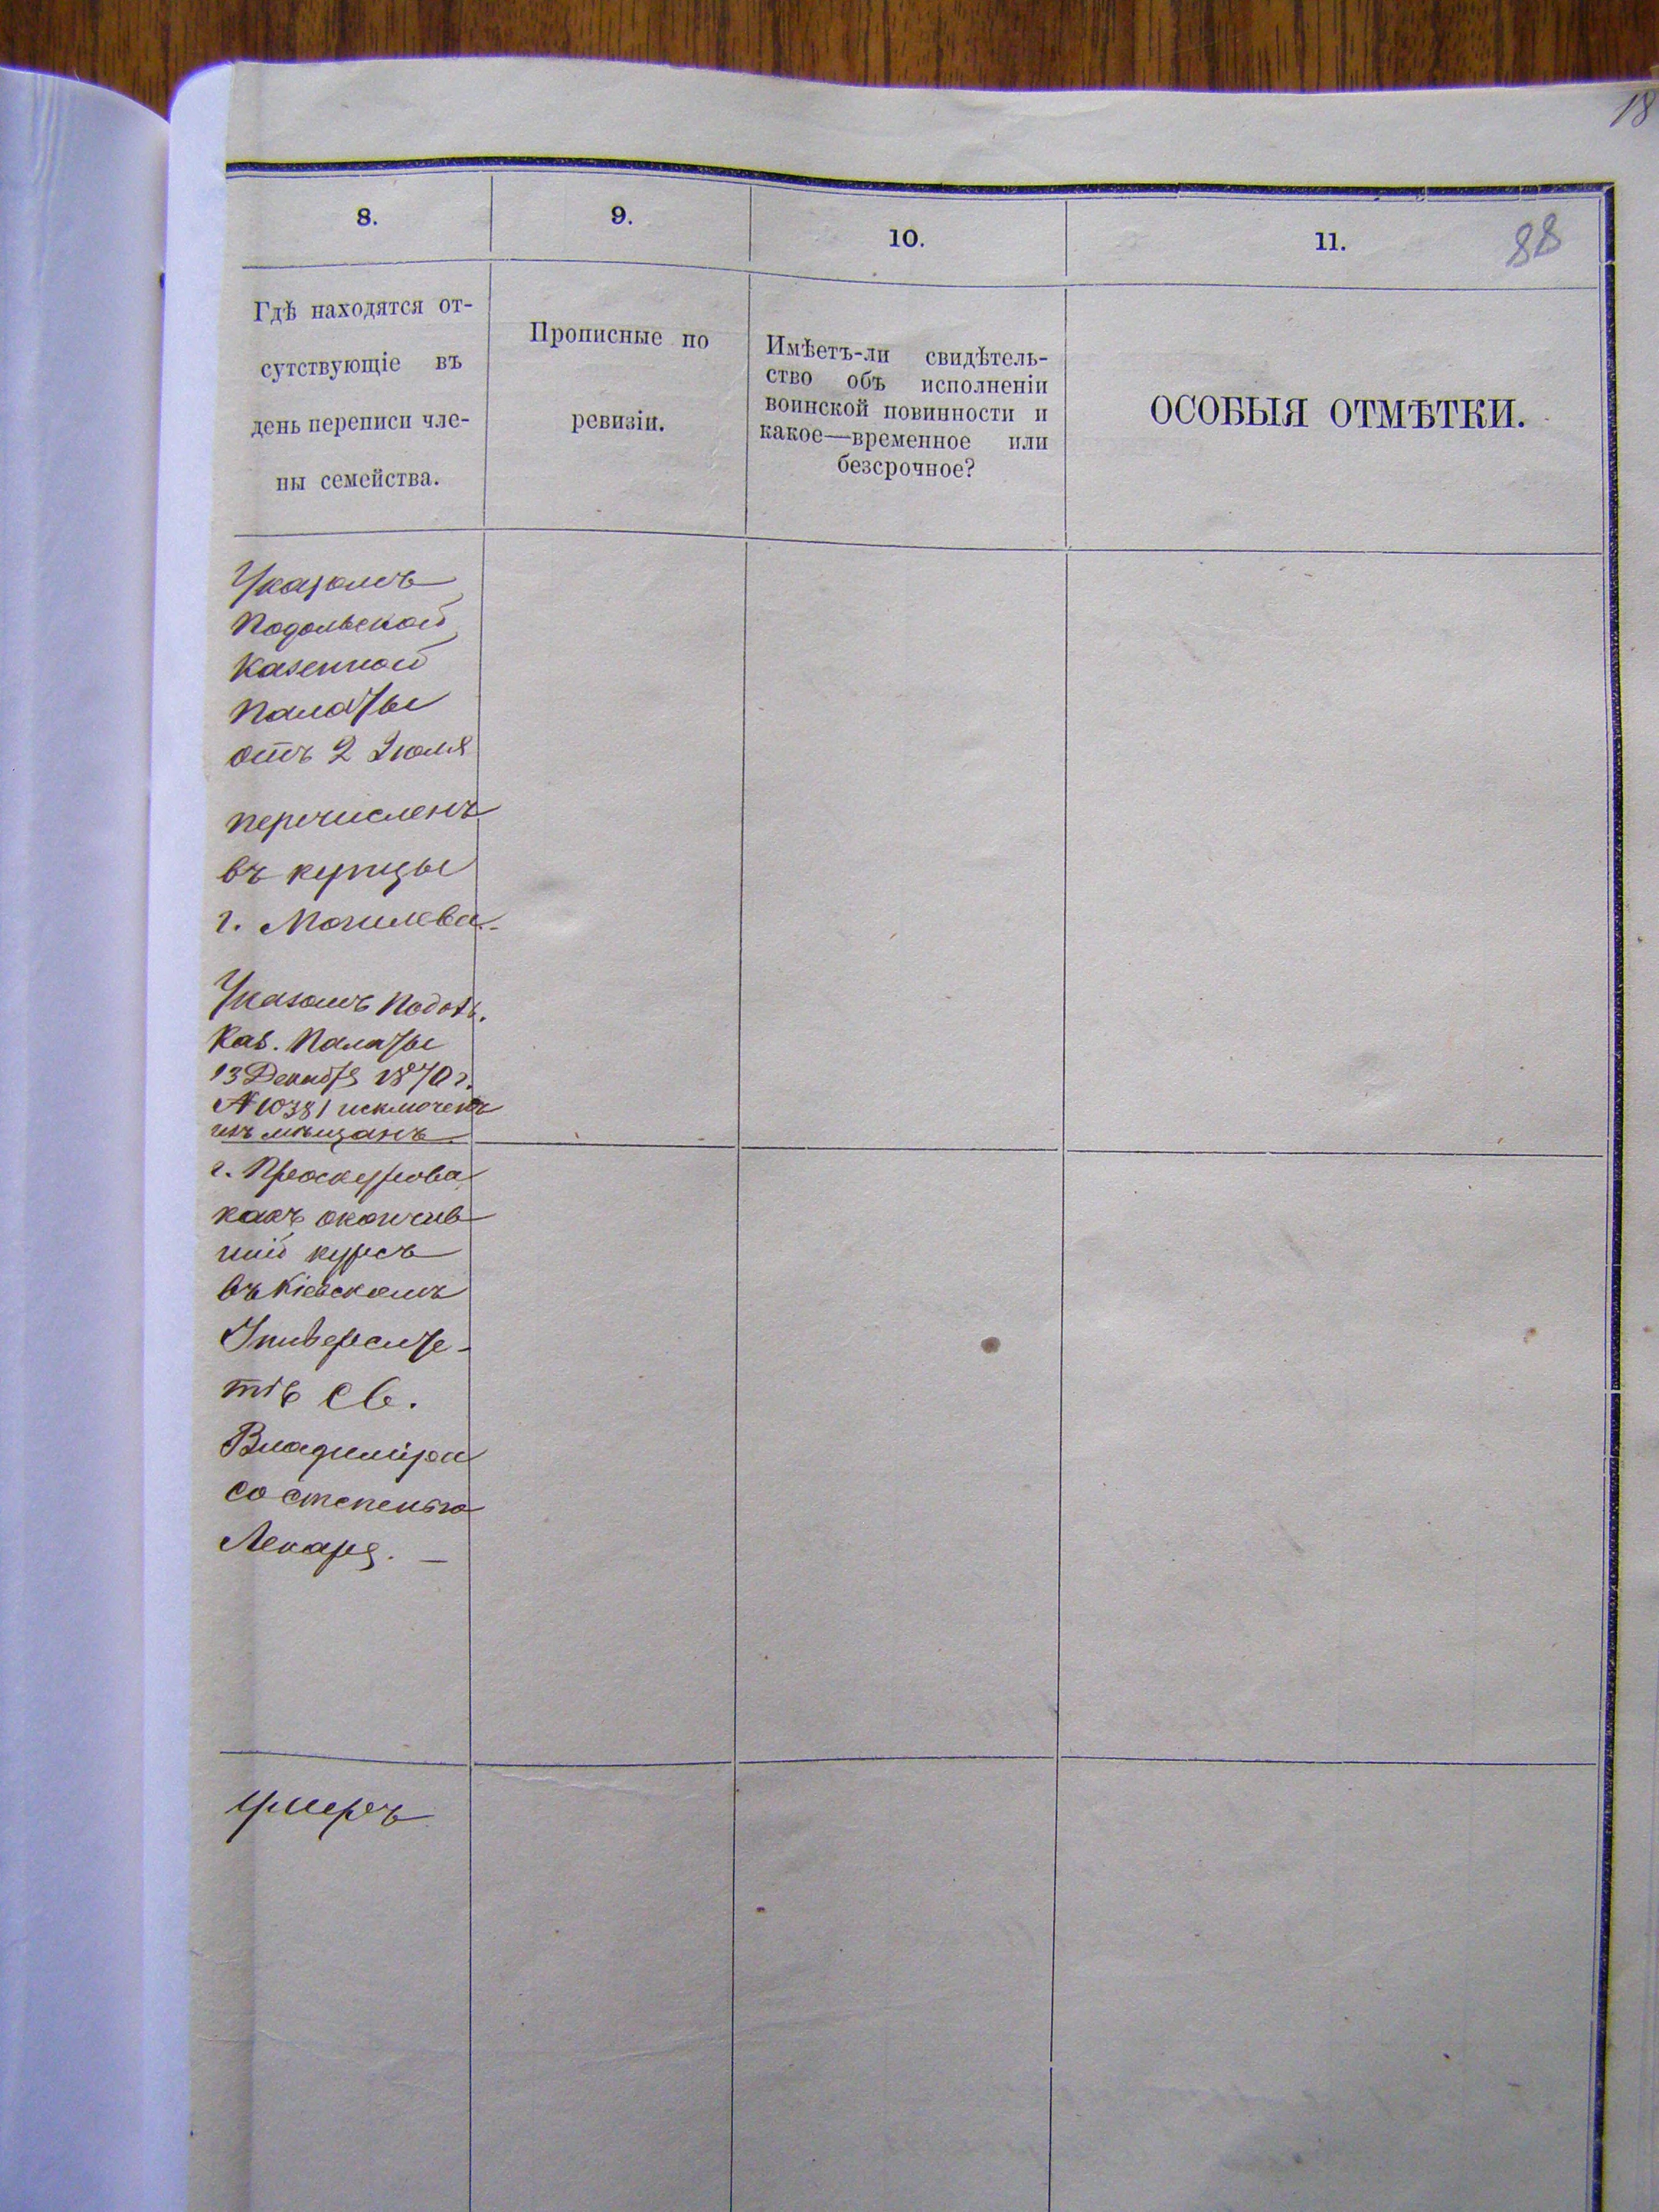 18
8.
9.
10.
11.
88
Гдѣ находятся от-
сутствующіе въ
день переписи чле-
ны семейства.
Прописные по
ревизіи.
Имѣетъ-ли свидѣтель-
ство объ исполненіи
воинской повинности и
какое—временное или
безсрочное?
ОСОБЫЯ ОТМѢТКИ.
Указомъ
Подольской
Казенной
Палаты
отъ 2 Іюля
перечисленъ
въ купцы
г. Могилева.-
Указомъ Подол.
Каз. Палаты
13 Декабря 1870 г.
№ 10381 исключенъ
изъ мѣщанъ
г. Проскурова
какъ окончив
шій курсъ
въ Кіевскомъ
Университе-
тѣ Св.
Владиміра
со степенью
Лекаря. —
умеръ